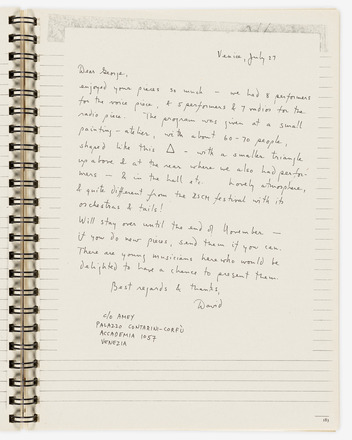 Venice, July 27
Dear George,
enjoyed your pieces so much – we had 8 performers
for the voice piece, & 5 performers & 7 radios for the
radio piece. The program was given at a small
painting-atelier, with about 60-70 people,
shaped like this △ – with a smaller triangle
up above & at the rear where we also had perfor-
mers – & in the hall etc. Lovely atmosphere,
& quite different from the ISCM festival with its
orchestras & tails!
Will stay over until the end of November –
if you do new pieces, send them if you can.
There are young musicians here who would be
delighted to have a chance to present them.
Best regards & thanks,
David
c/o AMEY
PALAZZO CONTARINI-CORFÙ
ACCADEMIA 1057
VENEZIA